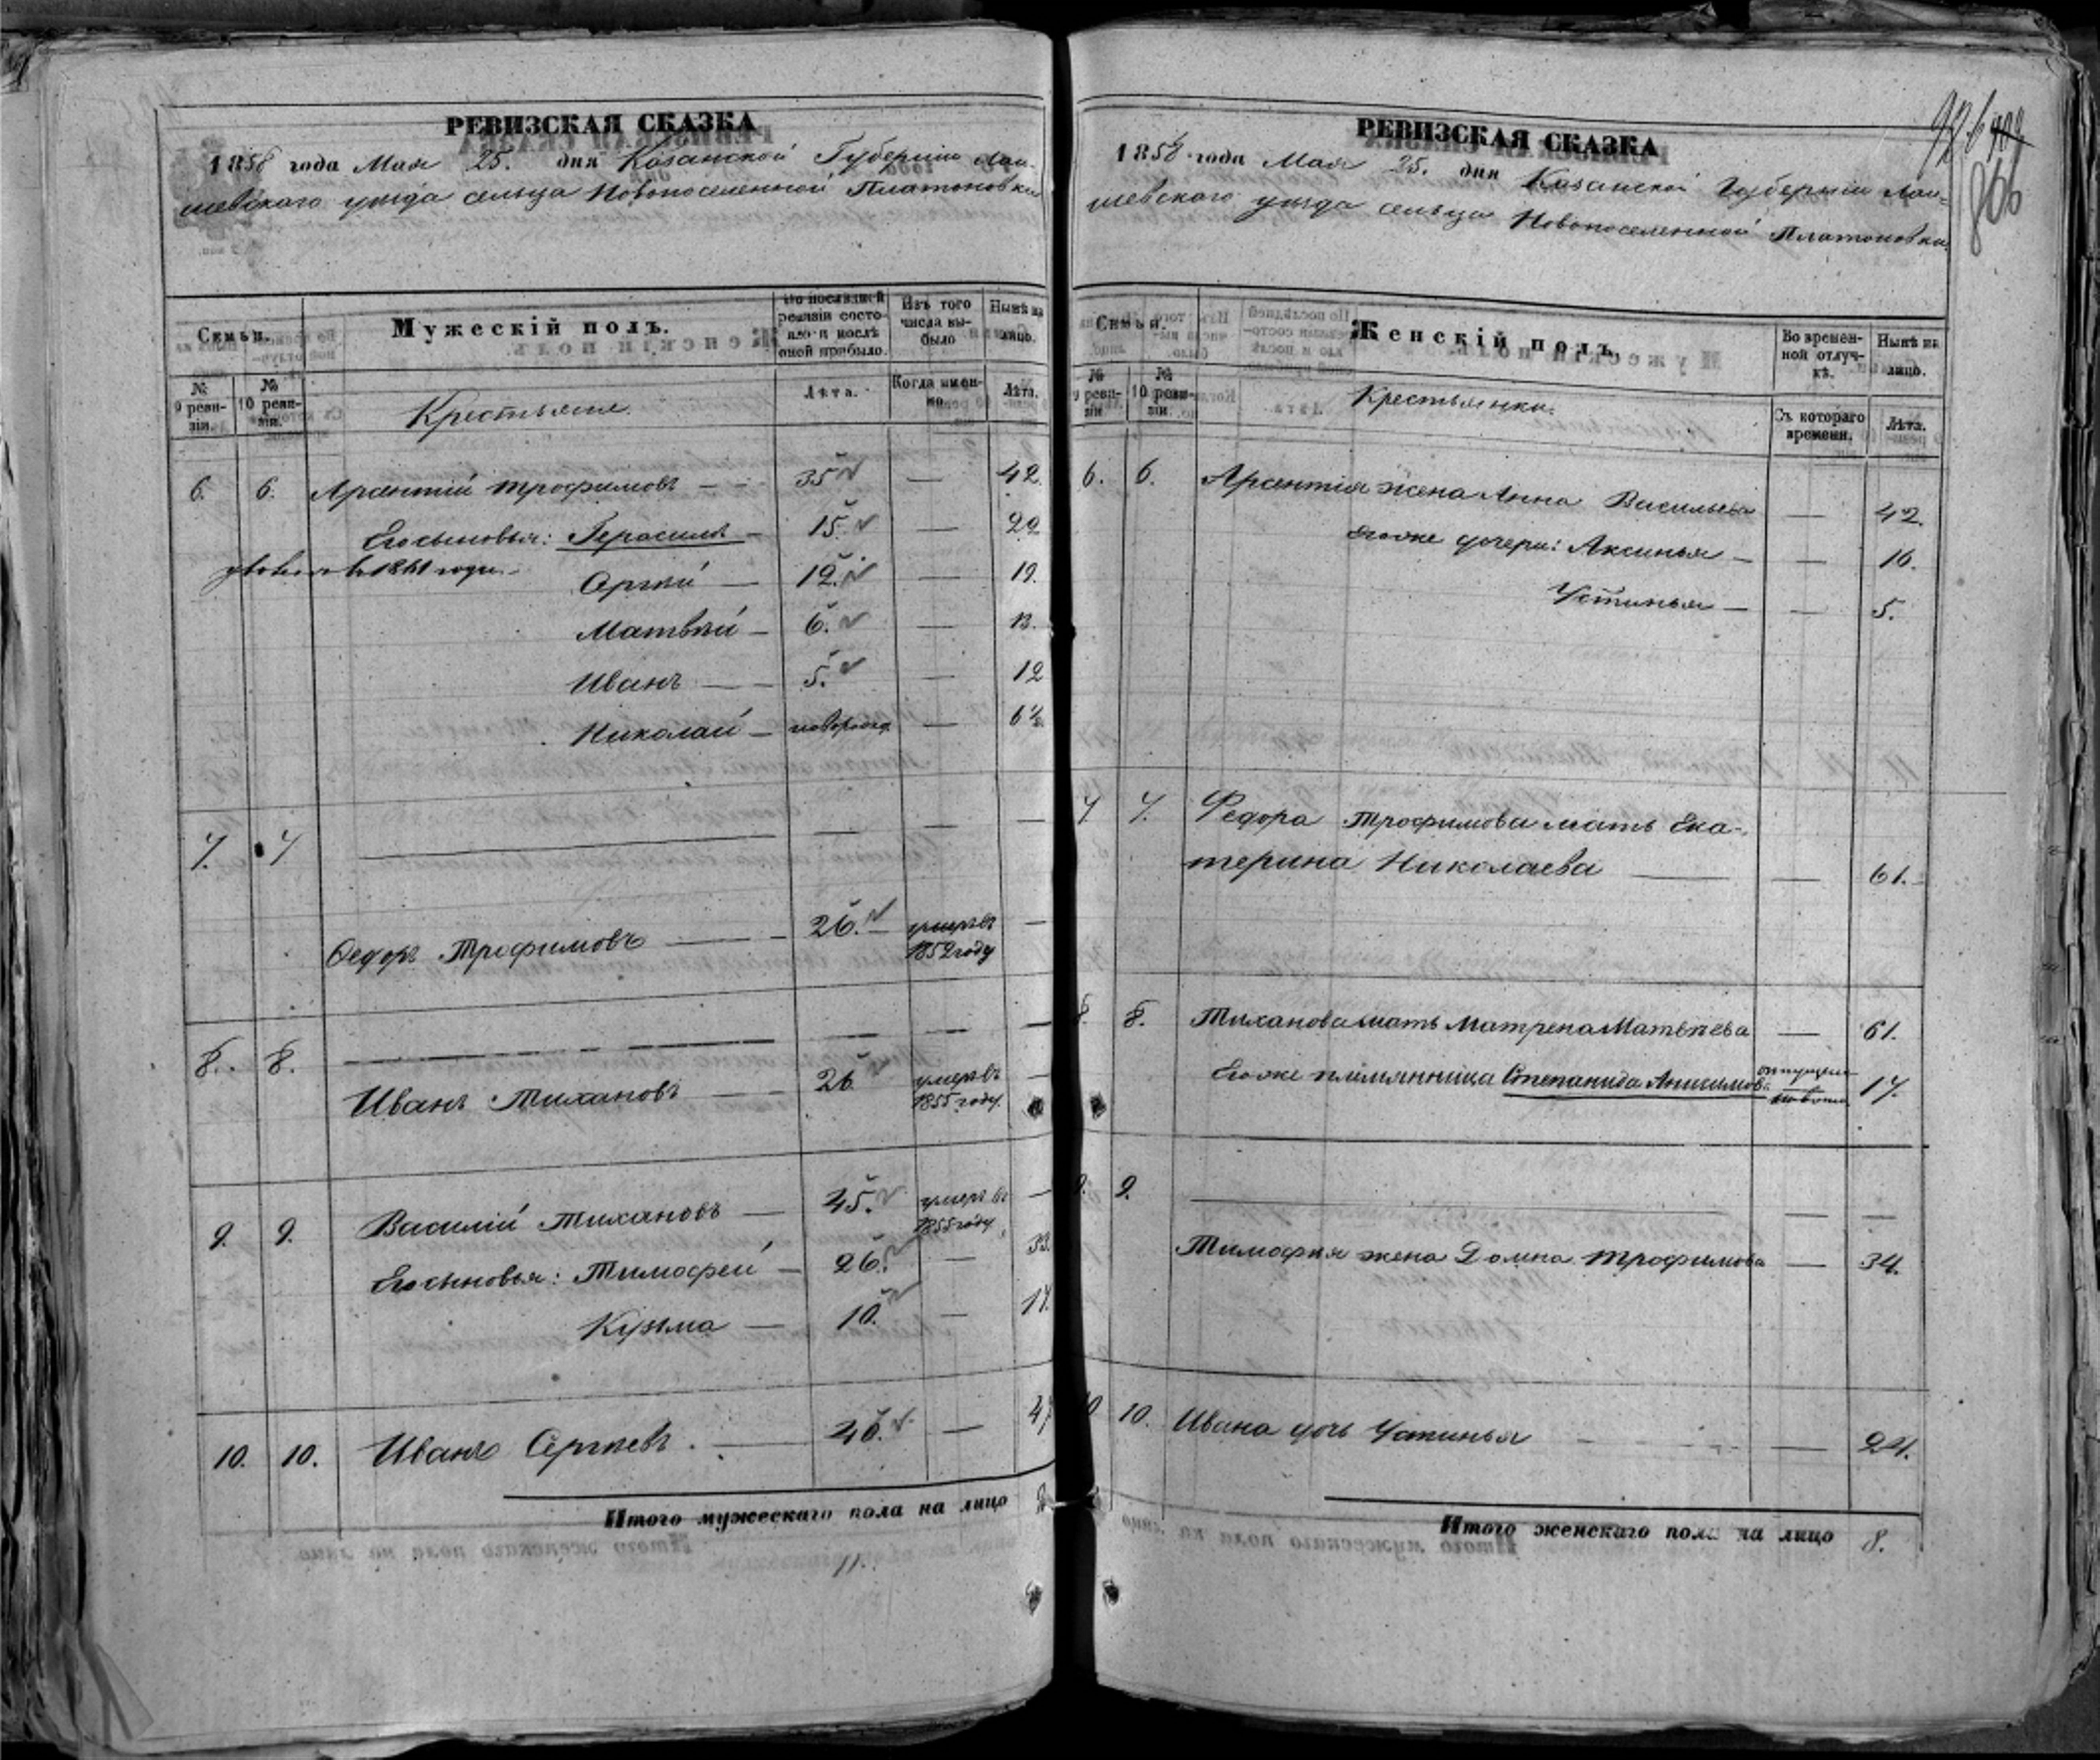 РЕВИЗСКАЯ СКАЗКА
1858 года Мая 25. дня Казанской Губернии Лаи-
шевскаго уѣзда сельца Новопоселенной Платоновки
Семьи.
Мужескій полъ.
По послѣдней ревизіи состояло и послѣ оной прибыло.
Изъ того числа выбыло
Нынѣ на лицо.
№ 9 ревизіи.
№ 10 ревизіи.
Крестьяне.
Лѣта.
Когда именно.
Лѣта.
6. 6. Арсентій Трофимовъ — 35 — 42.
Его сыновья: Герасимъ — 15. — 22
в 1861 году
Сергѣй — 12. — 19.
Матвѣй — 6. — 13.
Иванъ — 5. — 12
Николай — новорожд. — 6½
7. 7 — — — —
Федоръ Трофимовъ — 26. — умеръ въ 1852 году —
8. 8. — — — —
Иванъ Тихановъ — 26 умеръ въ 1855 году. —
9. 9. Василій Тихановъ — 45. умеръ въ 1855 году. —
Его сыновья: Тимофей — 26. — 33.
Кузьма — 10. — 17.
10. 10. Иванъ Сергѣевъ. — 40. — 47
Итого мужескаго пола на лицо
11.
РЕВИЗСКАЯ СКАЗКА
1858 года Мая 25. дня Казанской Губерніи Лаи-
шевскаго уѣзда сельца Новопоселенной Платоновки
866
Семьи.
Женскій полъ.
Во временной отлучкѣ.
Нынѣ на лицо.
№ 9 ревизіи
№ 10 ревизіи
Крестьянки.
Съ котораго времени.
Лѣта.
6. 6. Арсентія жена Анна Васильева — 42.
Его же дочери: Аксинья — — 16.
Устинья — — 5.
7 7. Федора Трофимова мать Ека-
терина Николаева — — 61.
8. 8. Тиханова мать Матрена Матвѣева — 61.
Его же племянница Степанида Анисимова 17.
9. 9. — — —
Тимофѣя жена Домна Трофимова — 34.
10 10. Ивана дочь Устинья — — 24.
Итого женскаго пола на лицо 8.